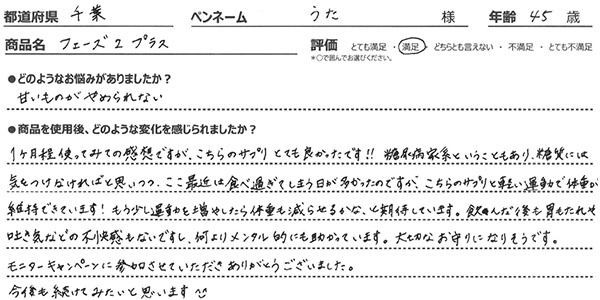 都道府県 千葉 ペンネーム うた 様 年齢 45 歳
商品名 フェーズ2プラス 評価 とても満足 ・ 満足 ・ どちらとも言えない ・ 不満足 ・ とても不満足
*○で囲んでお選びください。
●どのようなお悩みがありましたか？
甘いものがやめられない
●商品を使用後、どのような変化を感じられましたか？
1ヶ月程使ってみての感想ですが、こちらのサプリとても良かったです!! 糖尿病家系ということもあり、糖質には
気をつけなければと思いつつ、ここ最近は食べ過ぎてしまう日が多かったのですが、こちらのサプリと軽い運動で体重が
維持できています! もう少し運動を増やしたら体重も減らせるかな、と期待しています。飲んだ後も胃もたれや
吐き気などの不快感もないですし、何よりメンタル的にも助かっています。大切なお守りになりそうです。
モニターキャンペーンに参加させていただきありがとうございました。
今後も続けてみたいと思います